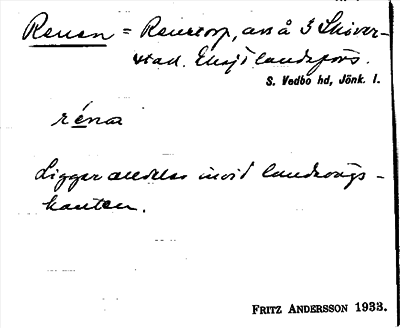 Renen = Renstorp, avs å 3 Skiver-
stad. Eksjö landsförs.
S. Vedbo hd, Jönk. l.
réna
Ligger alldeles invid landsvägs-
kanten.
FRITZ ANDERSSON 1933.